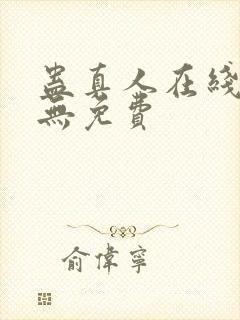 蠱真人在綫
無免費
俞偉寧